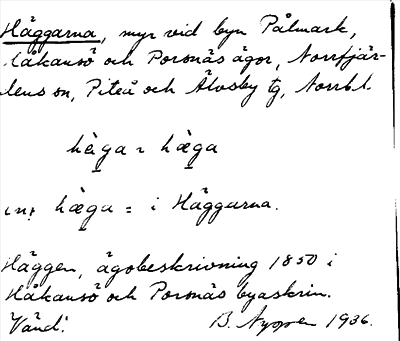 Häggarna, myr vid byn Pålmark,
Håkansö och Porsnäs ägor, Norrfjär-
dens sn, Piteå och Älvsby tg, Norrb.l.
hæ̀ga = hæ̀ga
int hæ̀ga = i Häggarna.
Häggen, ägobeskrivning 1850 i
Håkansö och Porsnäs byaskrin.
Vänd! B. Nyger 1936.